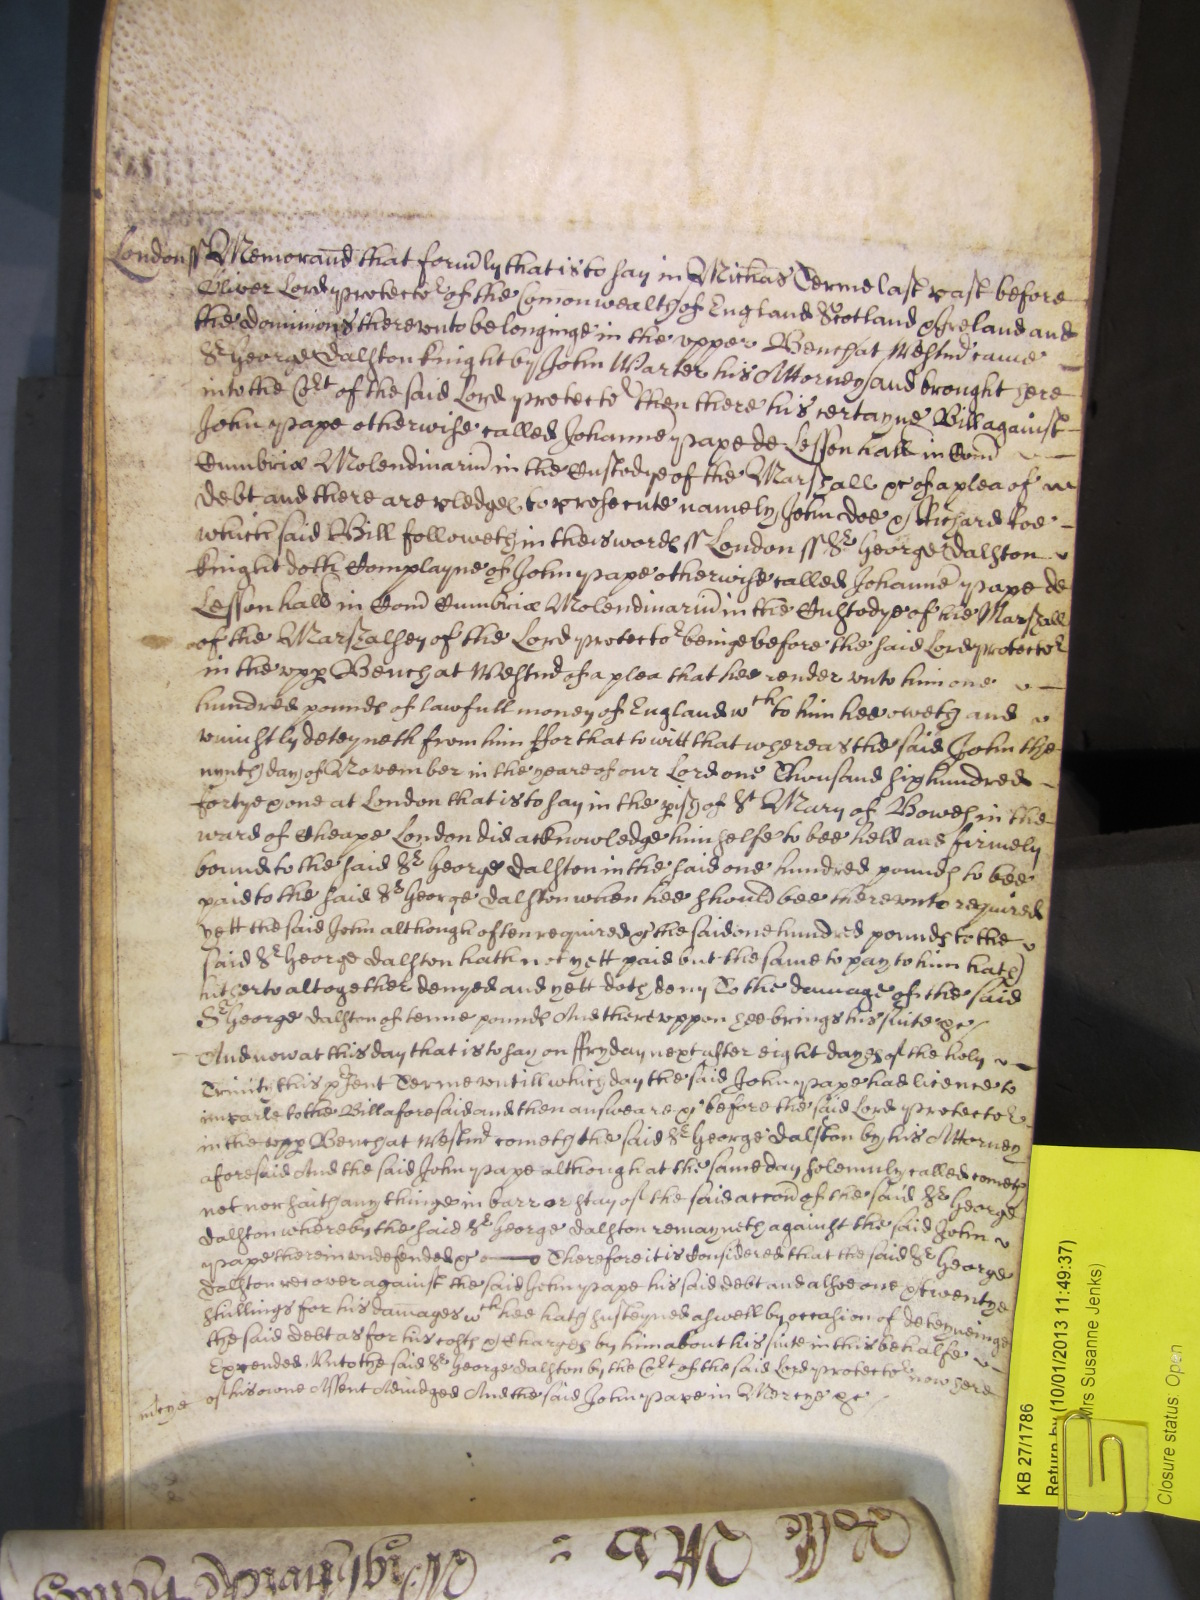 London ss Memorand that form̃ly that is to say in Michas Terme last past before
Oliver Lord Protector of the Comonwealth of England Scotland & Ireland and
the dominions thereunto belonginge in the upper Bench at Westm̃ came
Sr George Dalston Knight by John Warter his Attorney and brought here
into the Crt of the said Lord Protector then there his certayne Bill against
John Pape otherwise called Johanne Pape de Lessonhall in Com̃
Cumbriæ Molendinariu in the Custodye of the Marshall &c of a plea of
debt and there are pledges to prosecute namely John Doe & Richard Roe
which said Bill followeth in theis words ss London ss Sr George Dalston
Knight doth Complayne of John Pape otherwise called Johanne Pape de
Lessonhall in Com̃ Cumbriæ Molendinariu in the Custodye of the Marshall
of the Marshalsey of the Lord Protector beinge before the said Lord Protector
in the upp Bench at Westm̃ of a plea that hee render unto him one
hundred pounds of lawfull money of England wch to him hee oweth and
uniustly deteyneth from him For that to witt that whereas the said John the
nynth day of November in the yeare of our Lord one Thousand six hundred
fortye & one at London that is to say in the pish of St Mary of Bowes in the
ward of Cheape London did acknowledge himselfe to bee held and firmely
bound to the said Sr George Dalston in the said one hundred pounds to bee
paid to the said Sr George Dalston when hee should bee thereunto required
yett the said John although often required &c the said one hundred pounds to the
said Sr George Dalston hath not yett paid but the same to pay to him hath
hitherto altogether denyed and yett doth deny To the damage of the said
Sr George Dalston of tenne pounds And thereuppon hee brings his suite &c
And now at this day that is to say on ffryday next after eight dayes of the holy
Trinity this psent Terme untill which day the said John Pape had licence to
imparle to the Bill aforesaid and then answeare &c before the said Lord Protector
in the upp Bench at Westm̃ cometh the said Sr George Dalston by his Attorney
aforesaid And the said John Pape although at the same day solemnly called cometh
not nor saith any thinge in barr or stay of the said accon of the said Sr George
Dalston whereby the said Sr George Dalston remayneth against the said John
Pape therein undefended &c Therefore it is Considered that the said Sr George
Dalston recover against the said John Pape his said debt and alsoe one & twentye
shillings for his damages wch hee hath susteyned aswell by occasion of deteyneinge
the said debt as for his costs & Charges by him about his suite in this behalfe
Expended Unto the said Sr George Dalston by the Crt of the said Lord Protector now here
of his owne Assent Adiudged And the said John Pape in Mercye &c
m̃cye
KB 27/1786
Return by (10/01/2013 11:49:37)
Mrs Susanne Jenks)
Closure status: Open